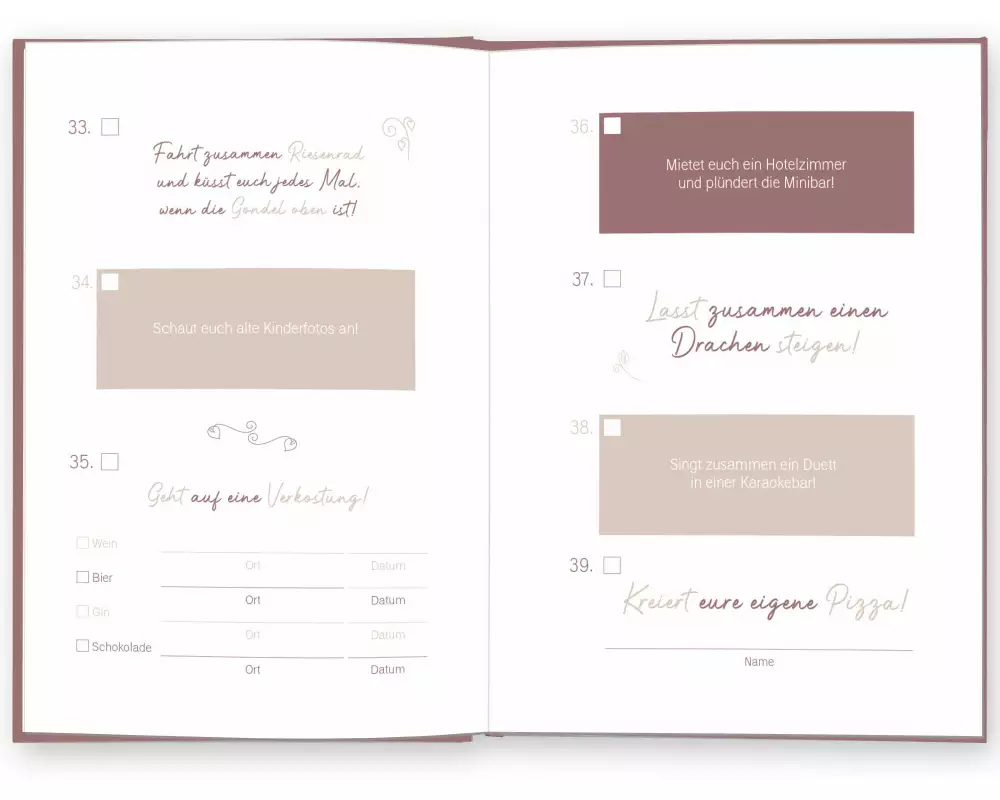 33.
Fahrt zusammen Riesenrad
und küsst euch jedes Mal,
wenn die Gondel oben ist!
34.
Schaut euch alte Kinderfotos an!
35.
Geht auf eine Verkostung!
Wein
Ort Datum
Bier
Ort Datum
Gin
Ort Datum
Schokolade
Ort Datum
36.
Mietet euch ein Hotelzimmer
und plündert die Minibar!
37.
Lasst zusammen einen
Drachen steigen!
38.
Singt zusammen ein Duett
in einer Karaokebar!
39.
Kreiert eure eigene Pizza!
Name